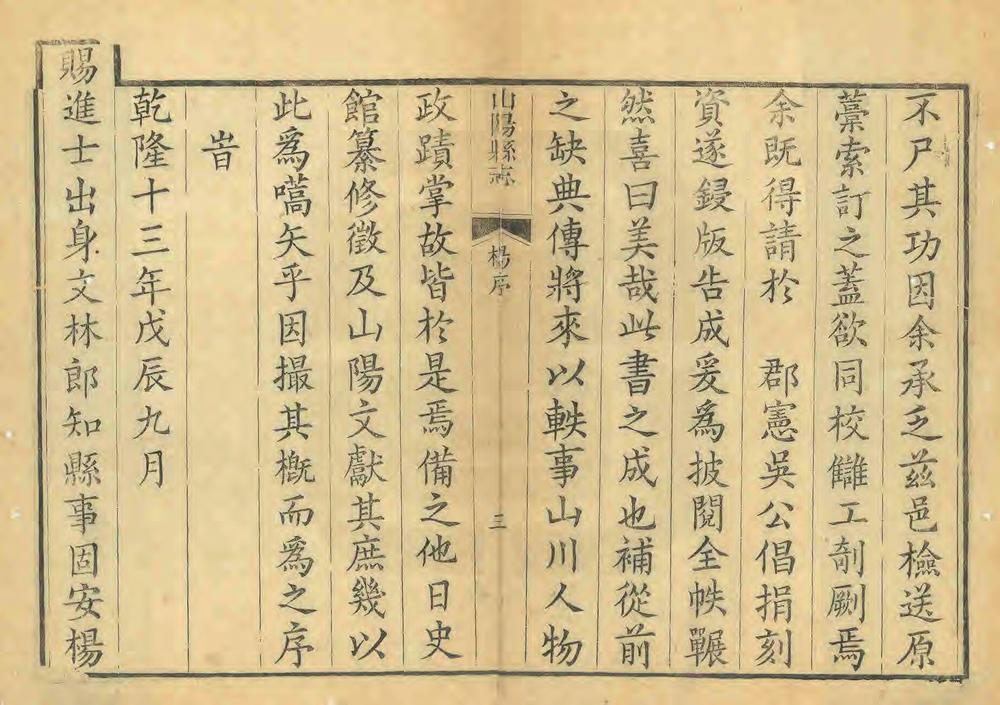 不尸其功因余承乏茲邑檢送原
藳索訂之蓋欲同校讎工剞劂焉
余既得請於　郡憲吳公倡捐刻
資遂鋟版告成爰為披閱全帙囅
然喜曰美哉此書之成也補從前
之缺典傳將來以軼事山川人物
山陽縣志　楊序　三
政蹟掌故皆於是焉備之他日史
館纂修徵及山陽文獻其庶幾以
此為嚆矢乎因撮其概而為之序
旹
乾隆十三年戊辰九月
賜進士出身文林郎知縣事固安楊